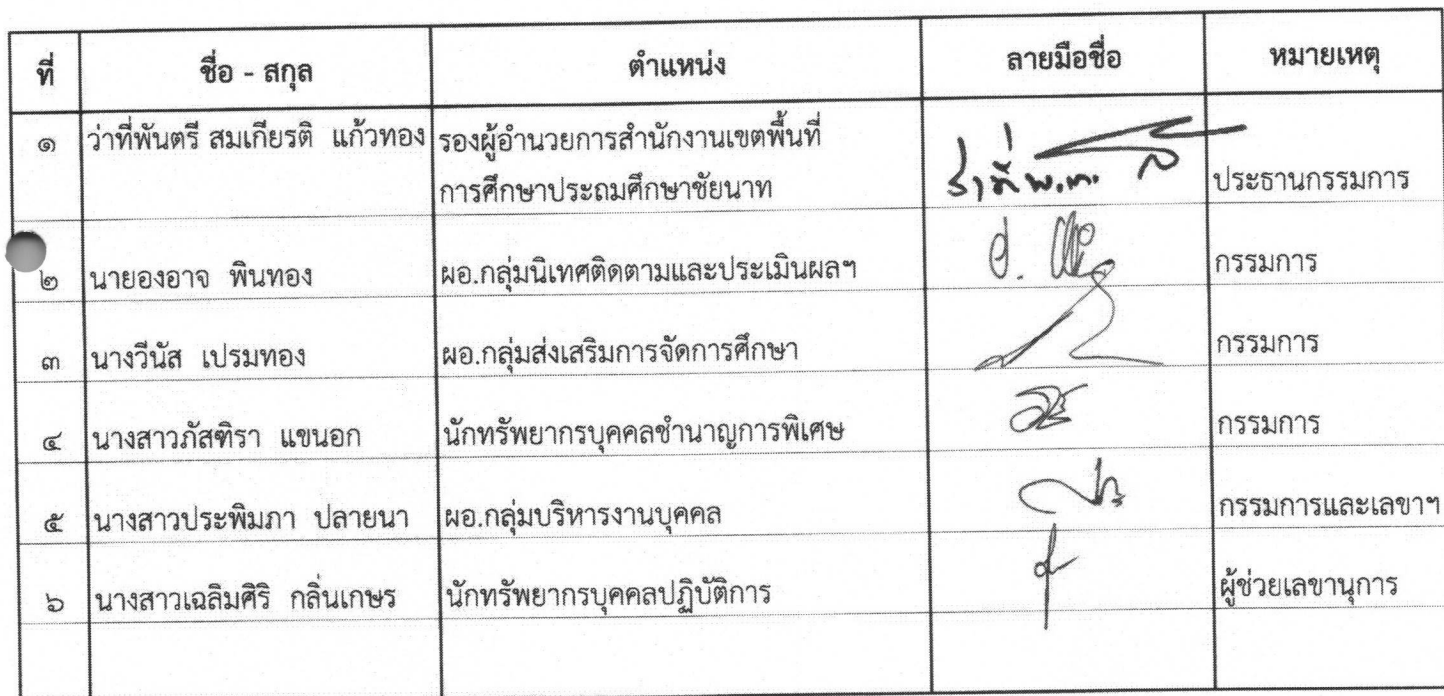 ที่ ชื่อ - สกุล ตำแหน่ง ลายมือชื่อ หมายเหตุ
๑ ว่าที่พันตรี สมเกียรติ แก้วทอง รองผู้อำนวยการสำนักงานเขตพื้นที่
การศึกษาประถมศึกษาชัยนาท ว่าที่ พ.ต. ประธานกรรมการ
๒ นายองอาจ พินทอง ผอ.กลุ่มนิเทศติดตามและประเมินผลฯ กรรมการ
๓ นางวีนัส เปรมทอง ผอ.กลุ่มส่งเสริมการจัดการศึกษา กรรมการ
๔ นางสาวภัสฑิรา แขนอก นักทรัพยากรบุคคลชำนาญการพิเศษ กรรมการ
๕ นางสาวประพิมภา ปลายนา ผอ.กลุ่มบริหารงานบุคคล กรรมการและเลขาฯ
๖ นางสาวเฉลิมศิริ กลิ่นเกษร นักทรัพยากรบุคคลปฏิบัติการ ผู้ช่วยเลขานุการ